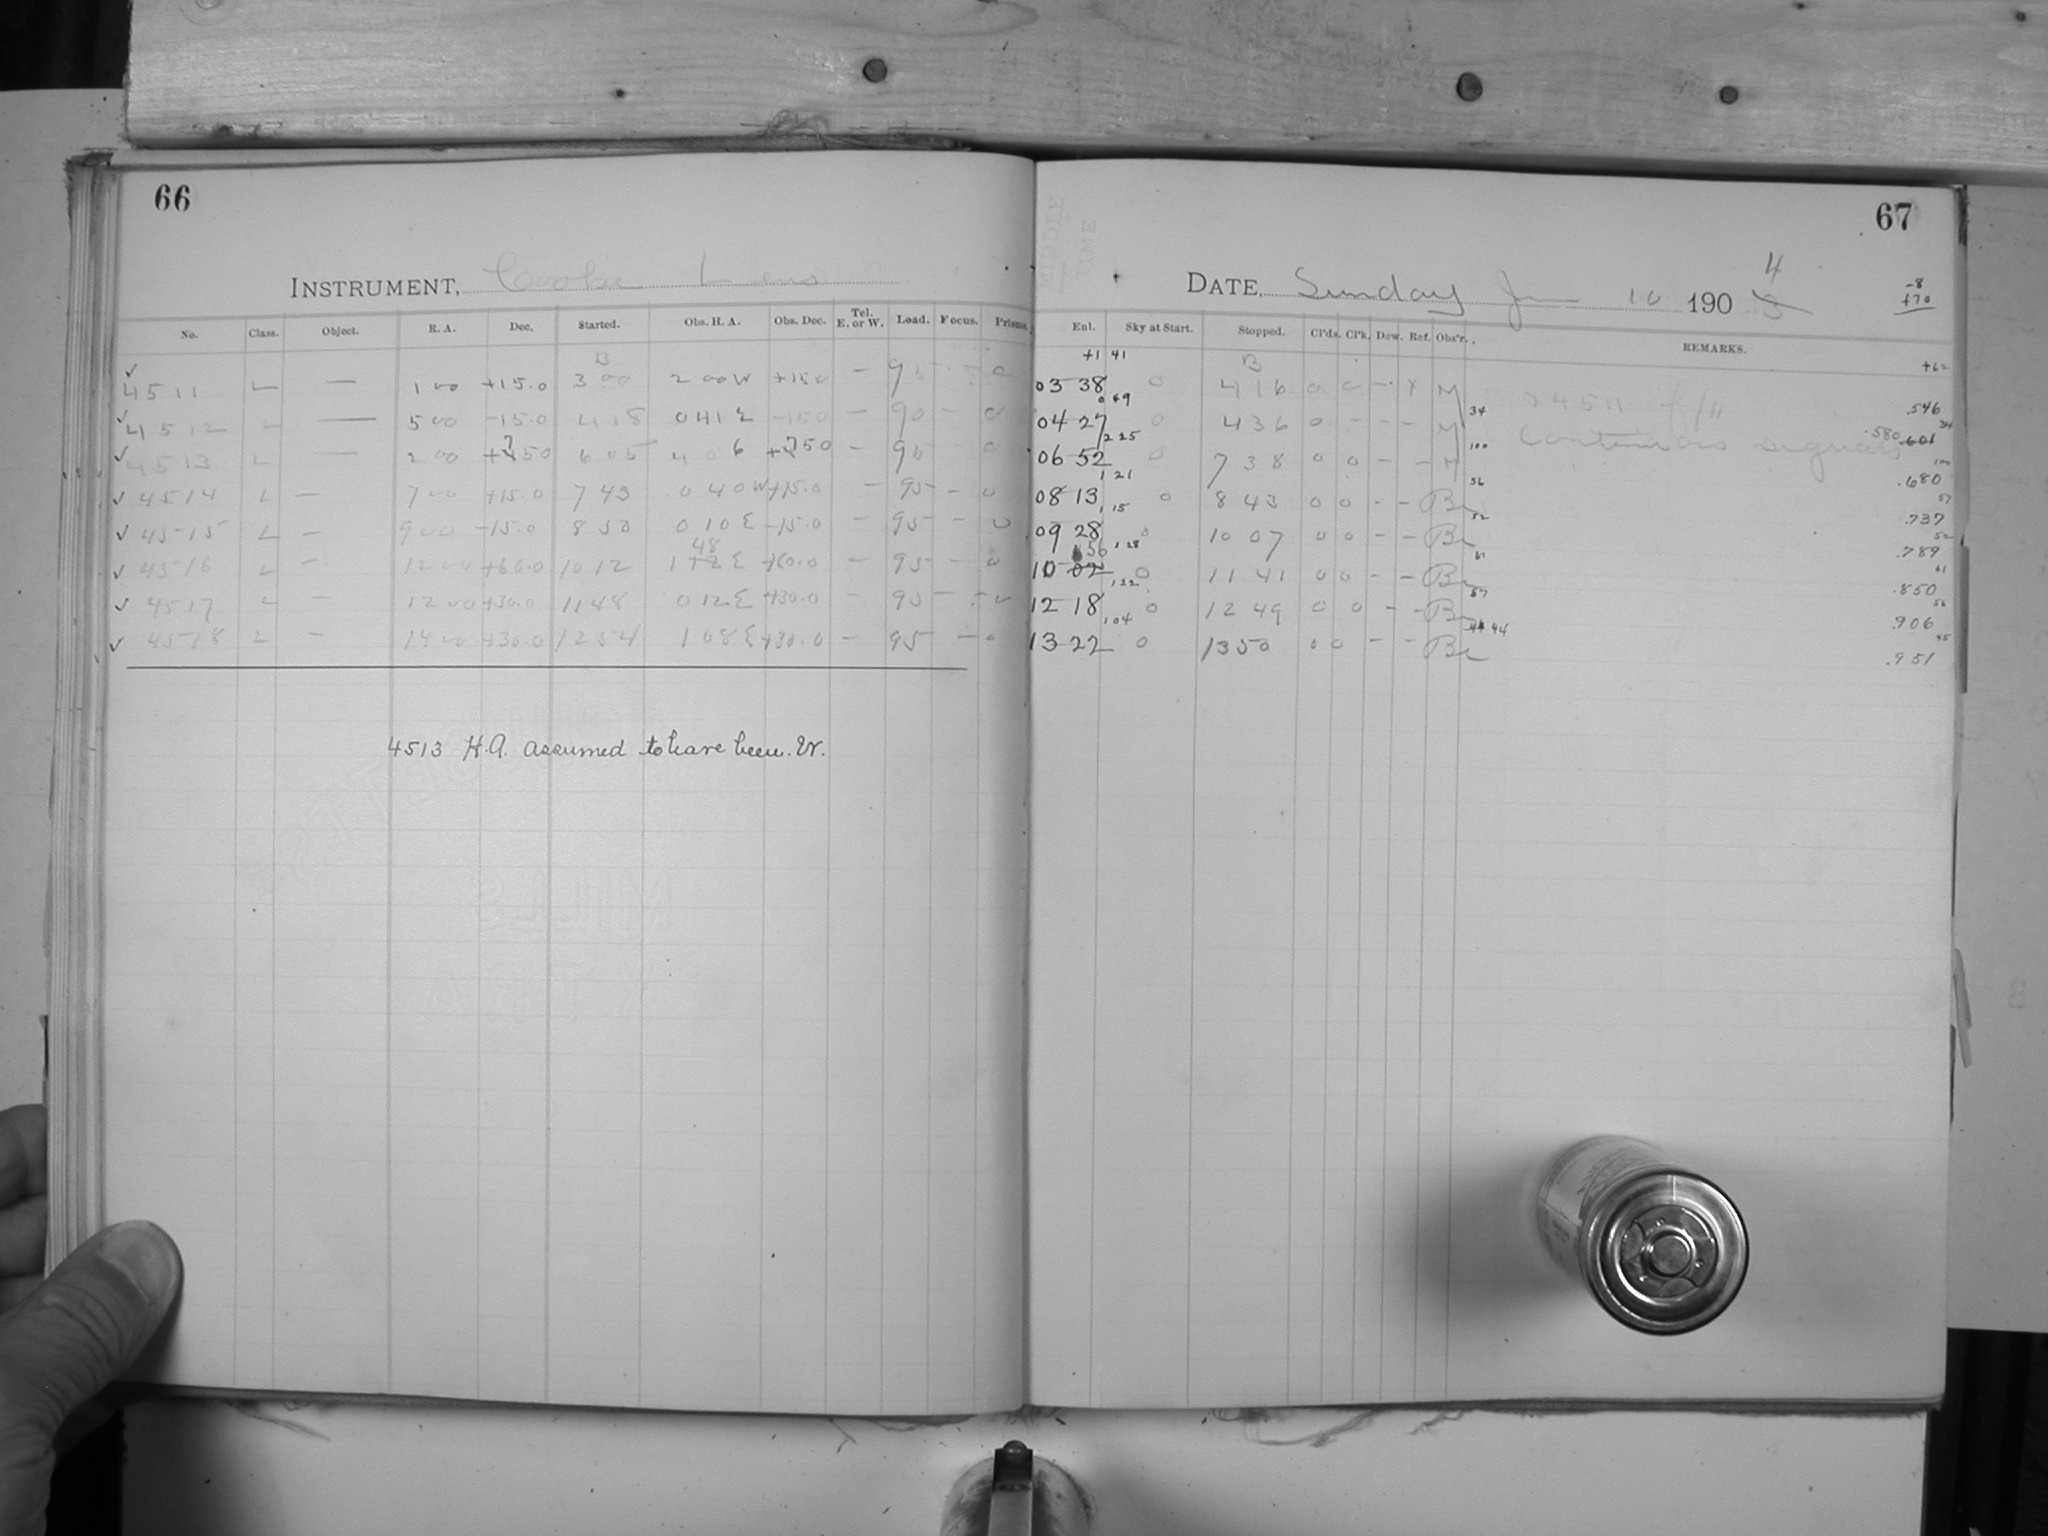 66
INSTRUMENT, Cooke Lens
No. Class. Object. R. A. Dec. Started. Obs. H. A. Obs. Dec. Tel. E. or W. Load. Focus. Prisms.
B
✓ 4511 L — 1 00 +15.0 3 00 2 00 W +15.0 — 95 - 0
✓ 4512 L — 5 00 -15.0 4 18 0 41 E -15.0 — 90 - 0
✓ 4513 L — 2 00 6 05 4 06 — 95 0
✓ 4514 L — 7 00 +15.0 7 43 0 40 W +15.0 — 95 - 0
✓ 4515 L — 9 00 -15.0 8 50 0 10 E -15.0 — 95 - 0
48
✓ 4516 L — 12 00 +60.0 10 12 1 12 E +60.0 — 95 - 0
✓ 4517 L — 12 00 +30.0 11 48 0 12 E +30.0 — 95 - 0
✓ 4518 L — 14 00 +30.0 12 54 1 08 E +30.0 — 95 - 0
4513 H.A. assumed to have been W.
67
DATE, Sunday Jan 10 1905 4
-8
+70
Enl. Sky at Start. Stopped. Cl'ds. Cl'k. Dew. Ref. Obs'r. REMARKS.
+1 41 B +62
03 38 0 4 16 0 0 - x M x 4511 f/11 .546
0 49 34 34
04 27 0 4 36 0 - - - M Continuous signals .580 .601
2 25 100 100
06 52 0 7 38 0 0 - - M .680
1 21 56 57
08 13 0 8 43 0 0 - - Br .737
1 15 52 52
09 28 0 10 07 0 0 - - Br .789
56 1 28 61 61
10 02 0 11 41 0 0 - - Br .850
1 22 57 56
12 18 0 12 49 0 0 - - Br .906
1 04 44 45
13 22 0 13 50 0 0 - - Br .951